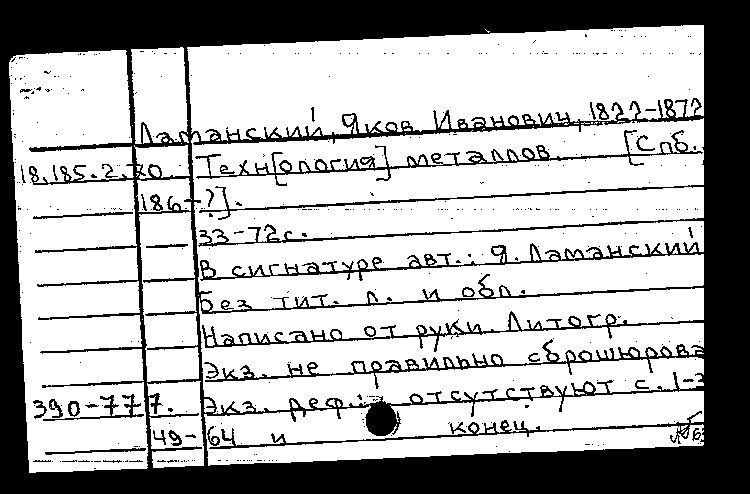 Ламанский, Яков Иванович, 1822-1872
18.185.2.70. Техн[ология] металлов. [Спб.
186-?].
33-72с.
В сигнатуре авт.: Я. Ламанский
Без тит. л. и обл.
Написано от руки. Литогр.
Экз. не правильно сброшюрова
390-777. Экз. деф.: отсутствуют с. 1-3
49-64 и конец.